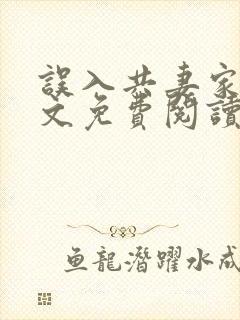 誤入共妻家
文免費閱讀
鱼龍潛躍水成